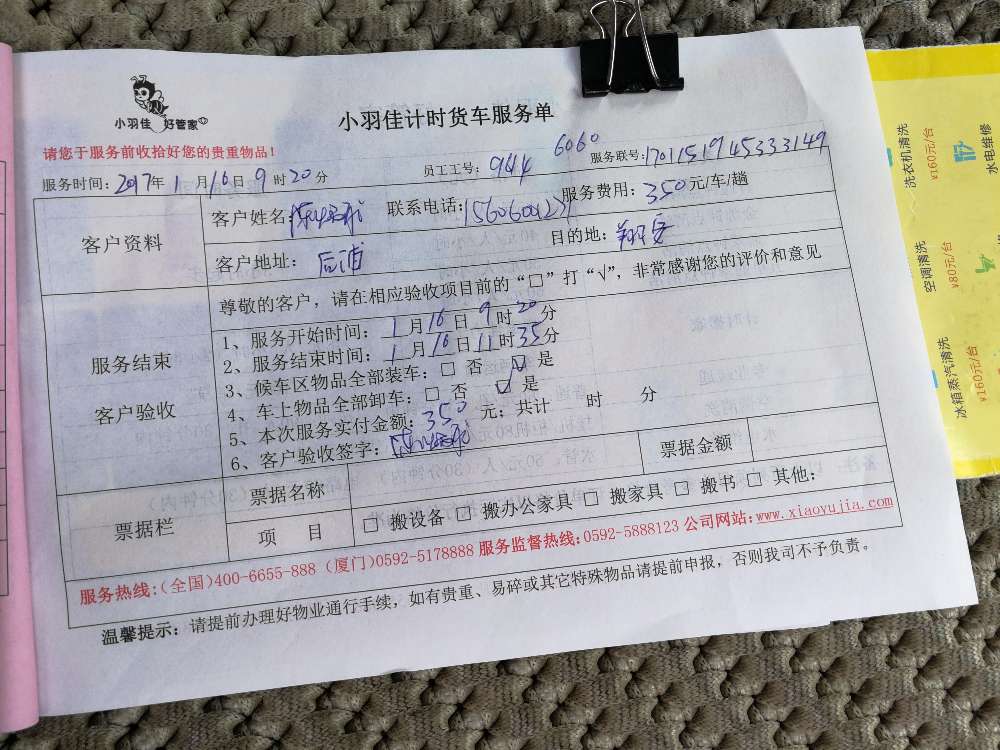 小羽佳 好管家
小羽佳计时货车服务单
请您于服务前收拾好您的贵重物品！
服务时间：2017年1月16日9时20分
员工工号：944 6060
服务联号：1701151945333149
客户资料
客户姓名： 联系电话： 服务费用：350元/车/趟
客户地址：后浦 目的地：翔安
服务结束
客户验收
尊敬的客户，请在相应验收项目前的“□”打“√”，非常感谢您的评价和意见
1、服务开始时间：1月16日9时20分
2、服务结束时间：1月16日11时35分
3、候车区物品全部装车：□ 否 ☑ 是
4、车上物品全部卸车：□ 否 ☑ 是
5、本次服务实付金额：350元；共计 时 分
6、客户验收签字：
票据栏
票据名称 票据金额
项 目 □ 搬设备 □ 搬办公家具 □ 搬家具 □ 搬书 □ 其他：
服务热线:(全国)400-6655-888 (厦门)0592-5178888 服务监督热线:0592-5888123 公司网站:www.xiaoyujia.com
温馨提示：请提前办理好物业通行手续，如有贵重、易碎或其它特殊物品请提前申报，否则我司不予负责。
洗衣机清洗
¥160元/台
水电维修
空调清洗
¥80元/台
冰箱蒸汽清洗
¥160元/台